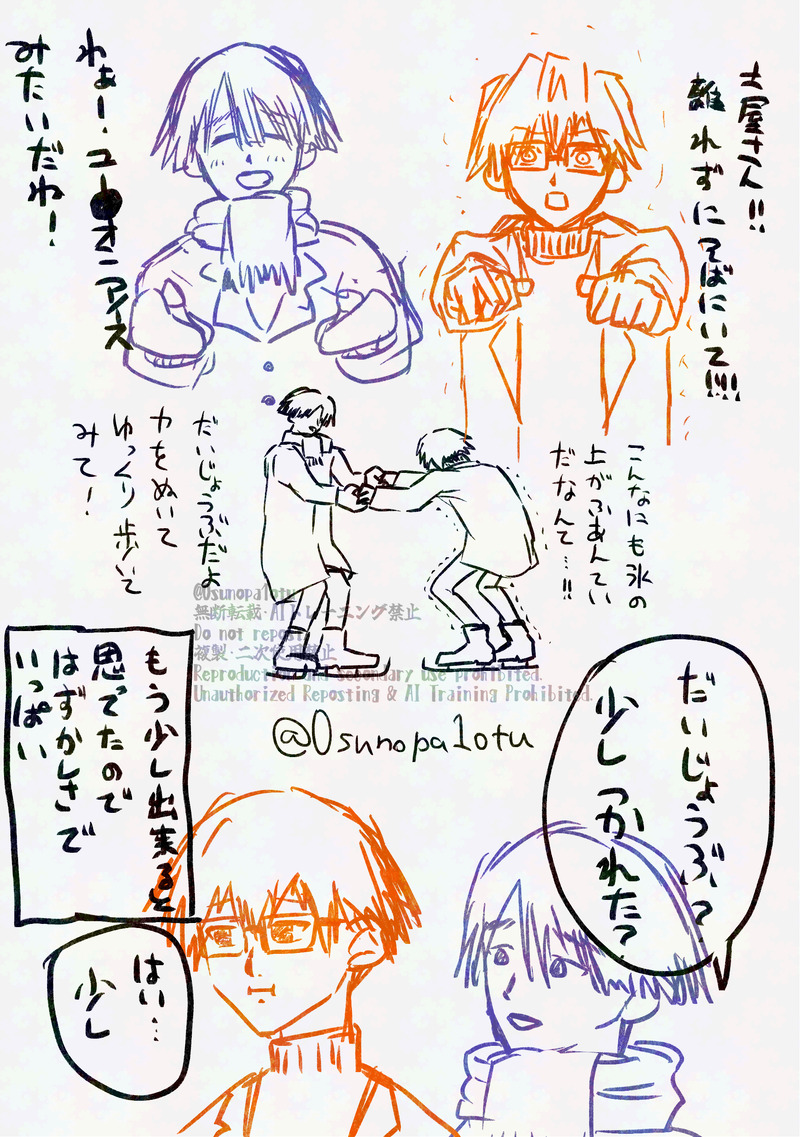 土屋さん!!
離れずにそばにいて!!!!
わぁー、ユー●オニアイス
みたいだね!
こんなにも氷の
上がふあんてい
だなんて…!!
だいじょうぶだよ
力をぬいて
ゆっくり歩いて
みて!
@Osunopa1otu
無断転載・AIトレーニング禁止
Do not repost.
複製・二次使用禁止
Reproduction and secondary use prohibited.
Unauthorized Reposting & AI Training Prohibited.
@Osunopa1otu
だいじょうぶ?
少しつかれた?
もう少し出来ると
思てたので
はずかしさで
いっぱい
はい…
少し